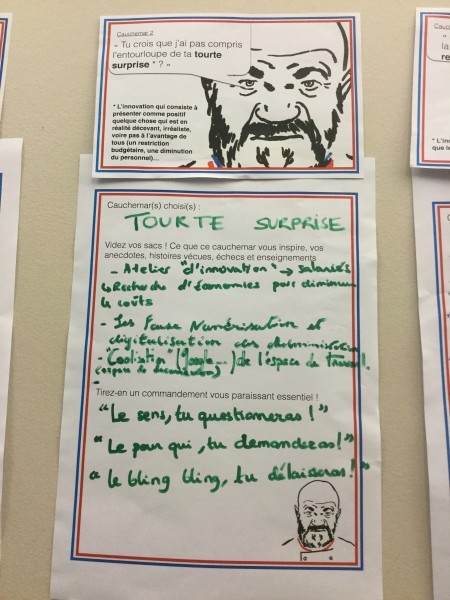 Cauchemar 2
« Tu crois que j'ai pas compris
l'entourloupe de ta tourte
surprise * ? »
* L'innovation qui consiste à
présenter comme positif
quelque chose qui est en
réalité décevant, irréaliste,
voire pas à l'avantage de
tous (un restriction
budgétaire, une diminution
du personnel)...
la
re
* L'inno
que le
Cauchemar(s) choisi(s) :
TOURTE SURPRISE
Videz vos sacs ! Ce que ce cauchemar vous inspire, vos
anecdotes, histoires vécues, échecs et enseignements
- Atelier "d'innovation" → salariés
↳ Recherche d'économies pour diminuer
les coûts
- Les Fausse Numérisation et
digitalisation des administration
- "Coolisation" (Google...) de l'espace de travail.
(espace de
Tirez-en un commandement vous paraissant essentiel !
"Le sens, tu questionneras !"
"Le pour qui, tu demanderas !"
"le bling bling, tu délaisseras !"